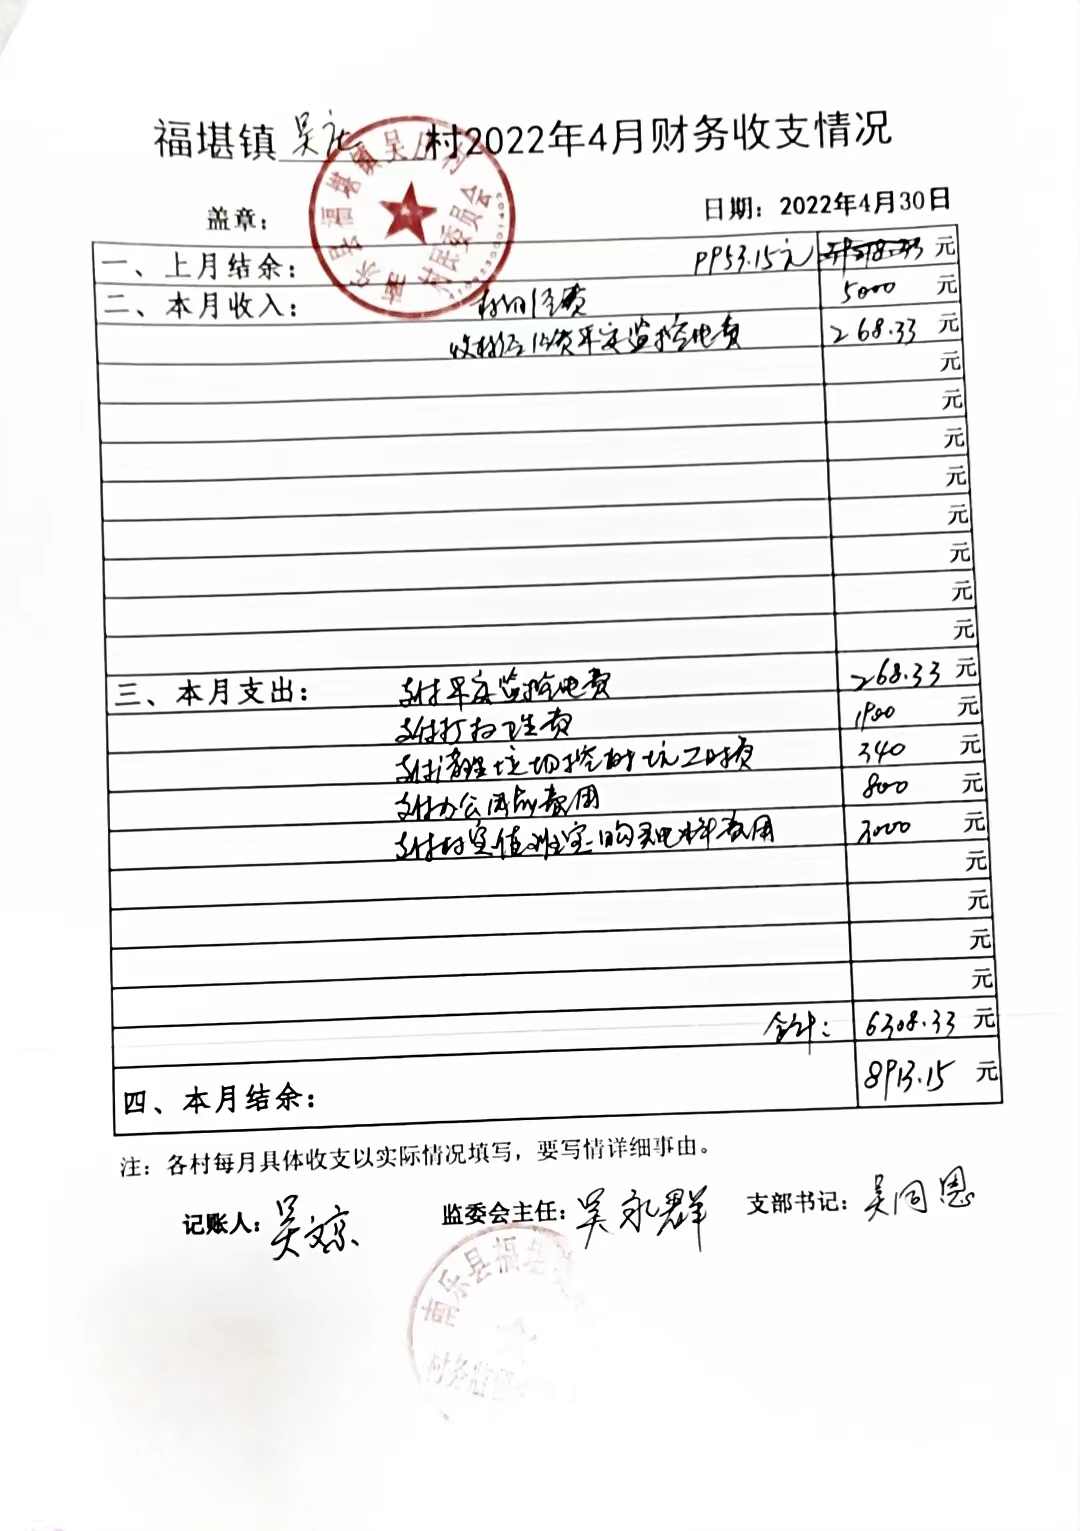 福堪镇 吴庄 村2022年4月财务收支情况
盖章： 日期：2022年4月30日
一、上月结余： 9953.15元 元
二、本月收入： 5000 元
268.33 元
元
元
元
元
元
元
元
元
三、本月支出： 支付平安监控电费 268.33 元
支付打扫卫生费 1900 元
支付清理垃圾挖树坑工时费 340 元
支付办公用品费用 800 元
支付村室值班室购买电料费用 3000 元
元
元
元
元
合计： 6308.33 元
四、本月结余： 8913.15 元
注：各村每月具体收支以实际情况填写，要写情详细事由。
记账人：吴文京 监委会主任：吴永群 支部书记：吴同恩
南乐县福堪
村务监